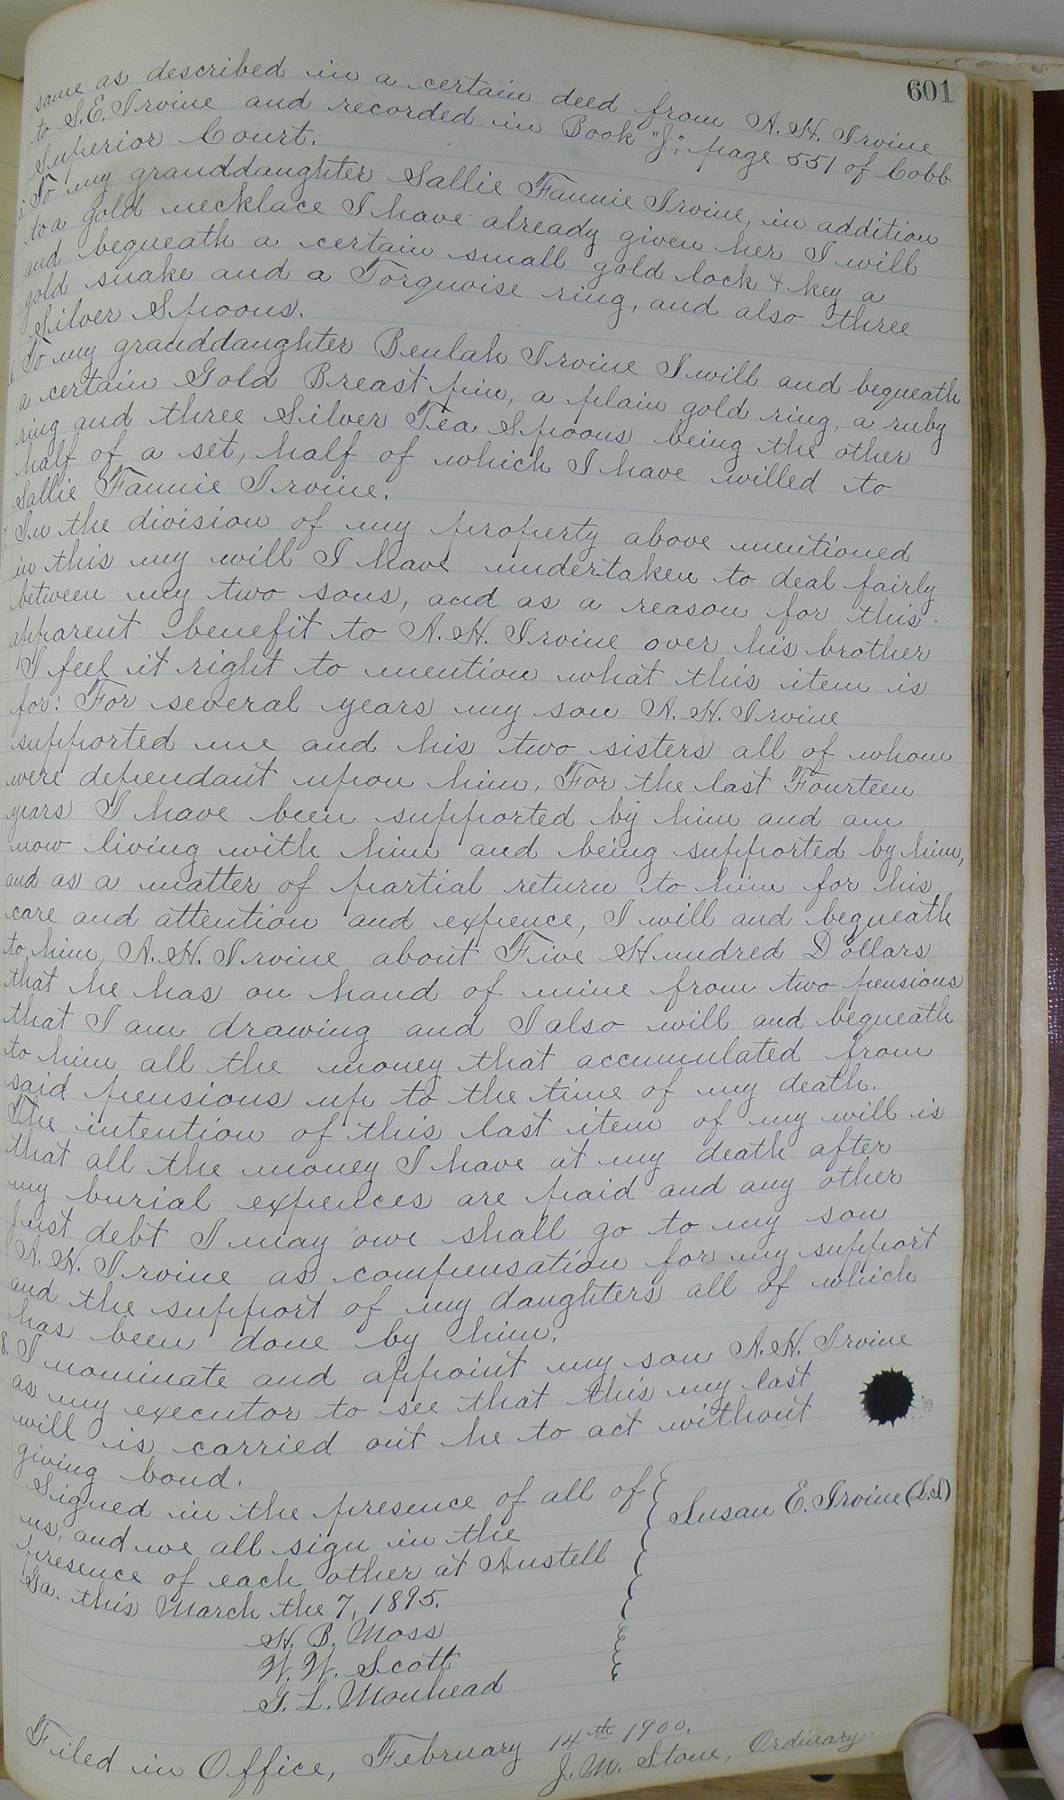 601
same as described in a certain deed from A. H. Irvine
to S. E. Irvine and recorded in Book "J", page 551 of Cobb
Superior Court.
To my granddaughter Sallie Fannie Irvine, in addition
to a gold necklace I have already given her I will
and bequeath a certain small gold lock & key a
gold snake and a Torquoise ring, and also three
Silver Spoons.
To my granddaughter Beulah Irvine I will and bequeath
a certain Gold Breast pin, a plain gold ring, a ruby
ring and three Silver Tea Spoons being the other
half of a set, half of which I have willed to
Sallie Fannie Irvine.
In the division of my property above mentioned
in this my will I have undertaken to deal fairly
between my two sons, and as a reason for this
apparent benefit to A. H. Irvine over his brother
I feel it right to mention what this item is
for: For several years my son A. H. Irvine
supported me and his two sisters all of whom
were dependant upon him. For the last Fourteen
years I have been supported by him and am
now living with him and being supported by him,
and as a matter of partial return to him for his
care and attention and expence, I will and bequeath
to him, A. H. Irvine about Five Hundred Dollars
that he has on hand of mine from two pensions
that I am drawing and I also will and bequeath
to him all the money that accumulated from
said pensions up to the time of my death.
The intention of this last item of my will is
that all the money I have at my death after
my burial expences are paid and any other
just debt I may owe shall go to my son
A. H. Irvine as compensation for my support
and the support of my daughters all of which
has been done by him.
8. I nominate and appoint my son A. H. Irvine
as my executor to see that this my last
will is carried out he to act without
giving bond.
Signed in the presence of all of
us, and we all sign in the
presence of each other at Austell
Ga. this March the 7, 1895.
Susan E. Irvine (L.S.)
H. B. Moss
W. W. Scott
G. L. Mouhead
Filed in Office, February 14th 1900.
J. M. Stone, Ordinary.